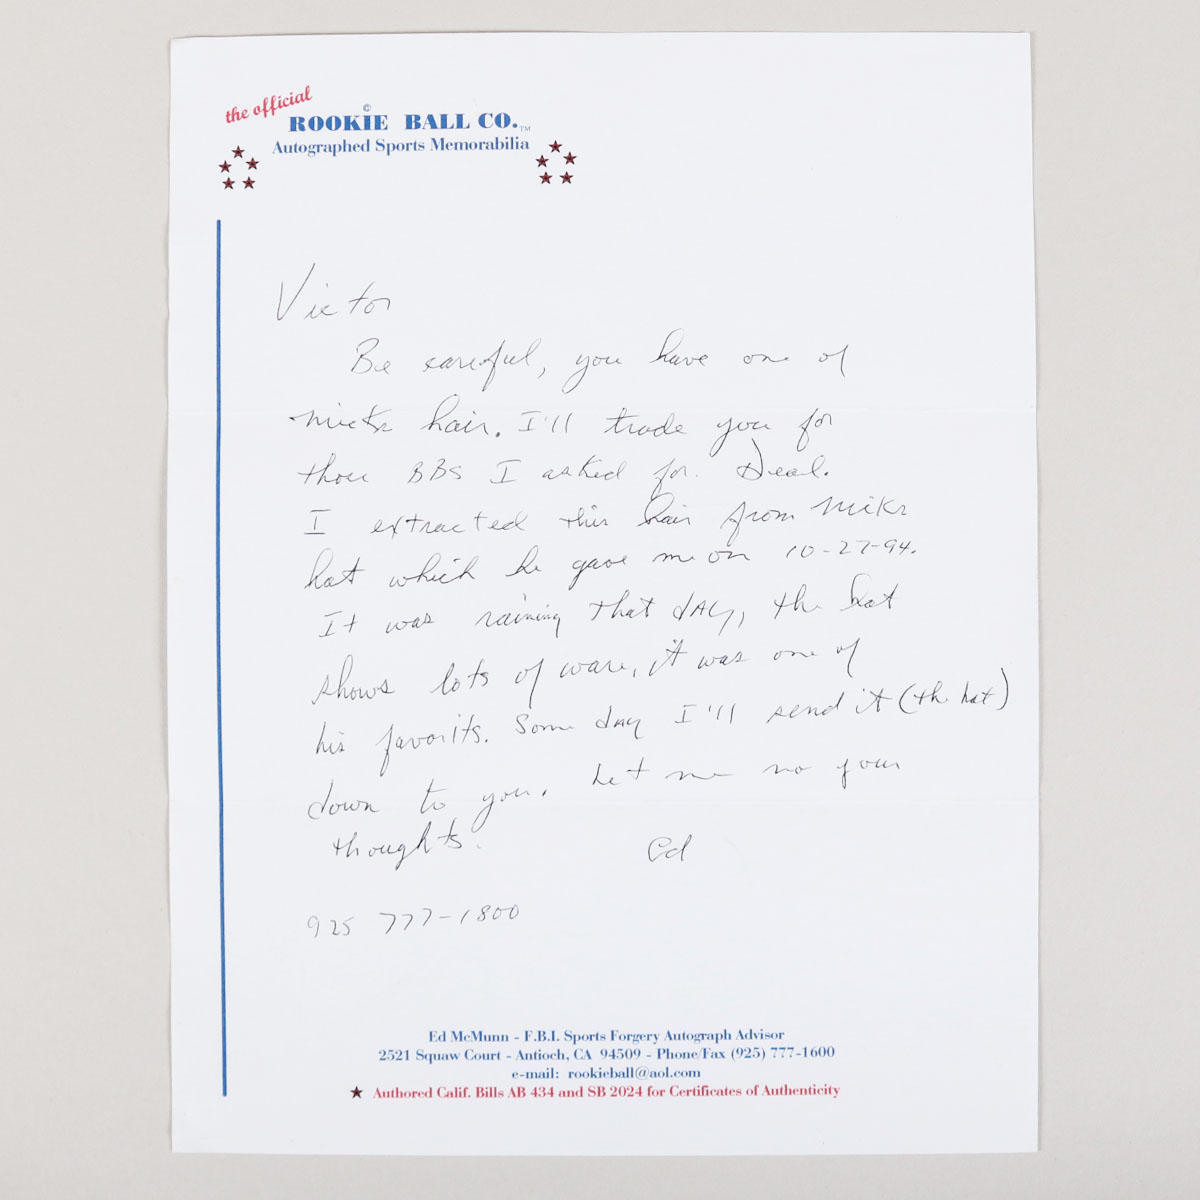 the official
ROOKIE BALL CO.™
©
Autographed Sports Memorabilia
Victor
Be careful, you have one of
micks hair. I'll trade you for
those BBS I asked for. Deal.
I extracted this hair from Micks
hat which he gave me on 10-27-94.
It was raining that day, the hat
shows lots of ware, it was one of
his favorits. Some day I'll send it (the hat)
down to you. Let me no your
thoughts.
Ed
925 777-1800
Ed McMunn - F.B.I. Sports Forgery Autograph Advisor
2521 Squaw Court - Antioch, CA 94509 - Phone/Fax (925) 777-1600
e-mail: rookieball@aol.com
★ Authored Calif. Bills AB 434 and SB 2024 for Certificates of Authenticity